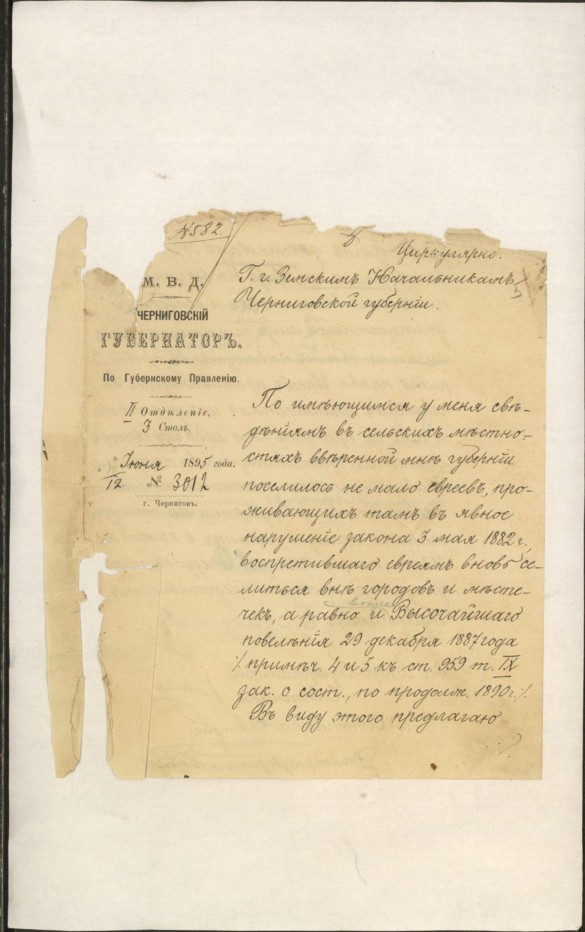 №582.
Циркулярно.
М. В. Д.
ЧЕРНИГОВСКІЙ
ГУБЕРНАТОРЪ.
По Губернскому Правленію.
II Отдѣленіе.
3 Столъ.
Іюня 1895 года.
12 № 3012
г. Черниговъ.
Г.г. Земскимъ Начальникамъ
Черниговской губерніи.
По имѣющимся у меня свѣ-
дѣніямъ въ сельскихъ мѣстно-
стяхъ ввѣренной мнѣ губерніи
поселилось не мало евреевъ, про-
живающихъ тамъ въ явное
нарушеніе закона 3 мая 1882 г.
воспретившаго евреямъ вновь се-
литься внѣ городовъ и мѣсте-
чекъ, а равно и Высочайшаго
повелѣнія 29 декабря 1887 года
/примѣч. 4 и 5 къ ст. 959 т. IX
зак. о сост., по продолж. 1890 г./.
Въ виду этого предлагаю